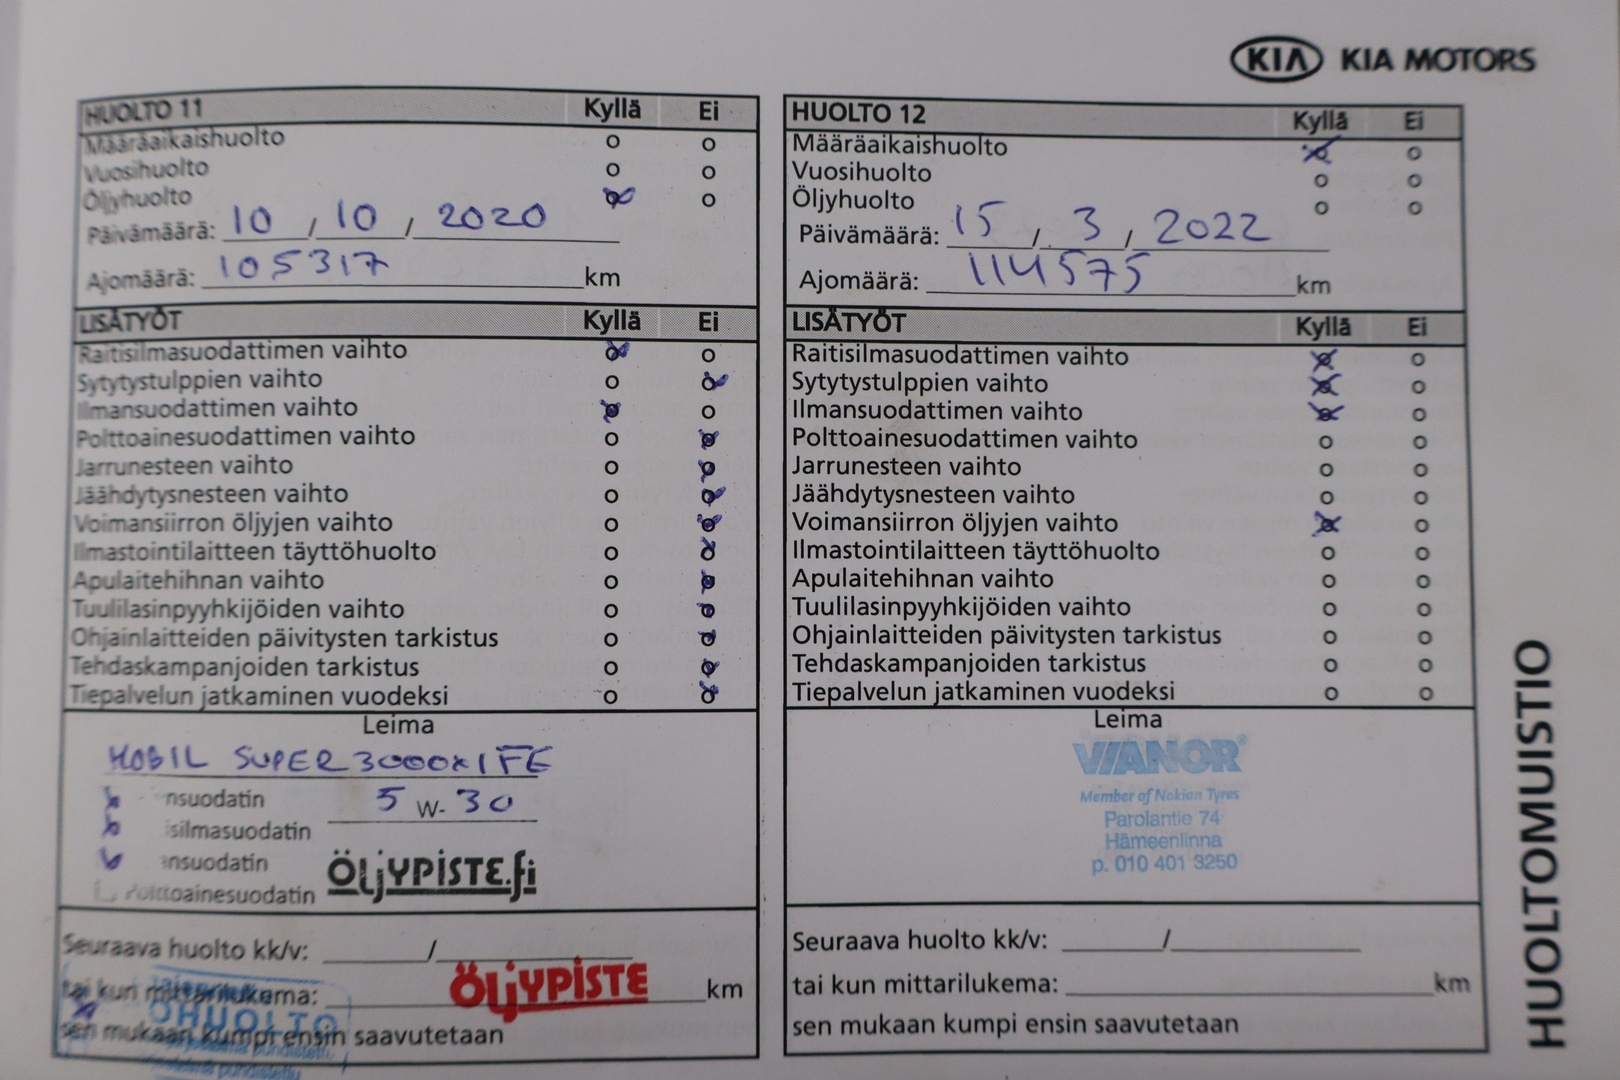 KIA KIA MOTORS
HUOLTO 11 Kyllä Ei
Määräaikaishuolto
Vuosihuolto
Öljyhuolto
Päivämäärä: 10 / 10 / 2020
Ajomäärä: 105317 km
LISÄTYÖT Kyllä Ei
Raitisilmasuodattimen vaihto
Sytytystulppien vaihto
Ilmansuodattimen vaihto
Polttoainesuodattimen vaihto
Jarrunesteen vaihto
Jäähdytysnesteen vaihto
Voimansiirron öljyjen vaihto
Ilmastointilaitteen täyttöhuolto
Apulaitehihnan vaihto
Tuulilasinpyyhkijöiden vaihto
Ohjainlaitteiden päivitysten tarkistus
Tehdaskampanjoiden tarkistus
Tiepalvelun jatkaminen vuodeksi
Leima
MOBIL SUPER 3000x1 FE
nsuodatin 5 W-30
isilmasuodatin
ansuodatin
Polttoainesuodatin
ÖLJYPISTE.fi
Seuraava huolto kk/v: /
tai kun mittarilukema: km
ÖLJYPISTE
HUOLTO
sen mukaan kumpi ensin saavutetaan
HUOLTO 12 Kyllä Ei
Määräaikaishuolto
Vuosihuolto
Öljyhuolto
Päivämäärä: 15 / 3 / 2022
Ajomäärä: 114575 km
LISÄTYÖT Kyllä Ei
Raitisilmasuodattimen vaihto
Sytytystulppien vaihto
Ilmansuodattimen vaihto
Polttoainesuodattimen vaihto
Jarrunesteen vaihto
Jäähdytysnesteen vaihto
Voimansiirron öljyjen vaihto
Ilmastointilaitteen täyttöhuolto
Apulaitehihnan vaihto
Tuulilasinpyyhkijöiden vaihto
Ohjainlaitteiden päivitysten tarkistus
Tehdaskampanjoiden tarkistus
Tiepalvelun jatkaminen vuodeksi
Leima
VIANOR
Member of Nokian Tyres
Parolantie 74
Hämeenlinna
p. 010 401 3250
Seuraava huolto kk/v: /
tai kun mittarilukema: km
sen mukaan kumpi ensin saavutetaan
HUOLTOMUISTIO